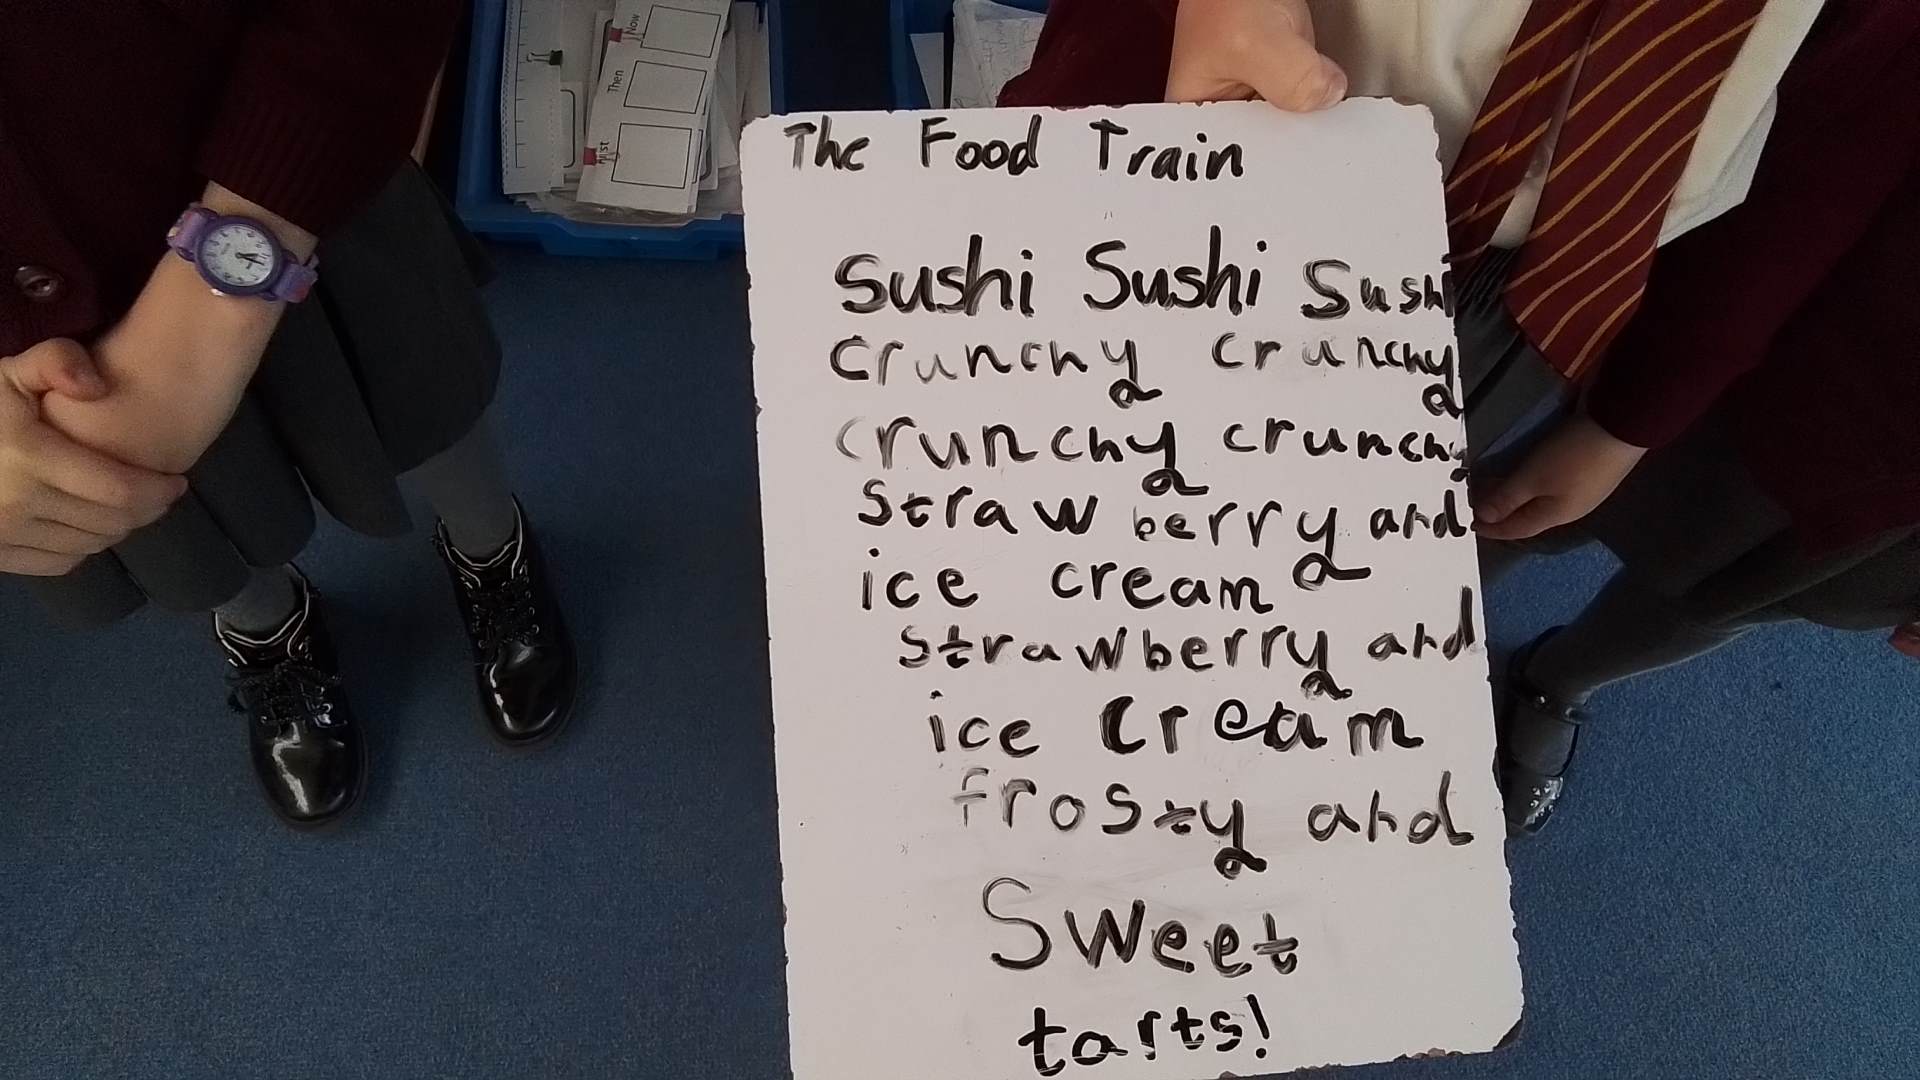 Now
Then
The Food Train
Sushi Sushi Sushi
crunchy crunchy
crunchy crunchy
strawberry and
ice cream
strawberry and
ice cream
frosty and
Sweet
tarts!